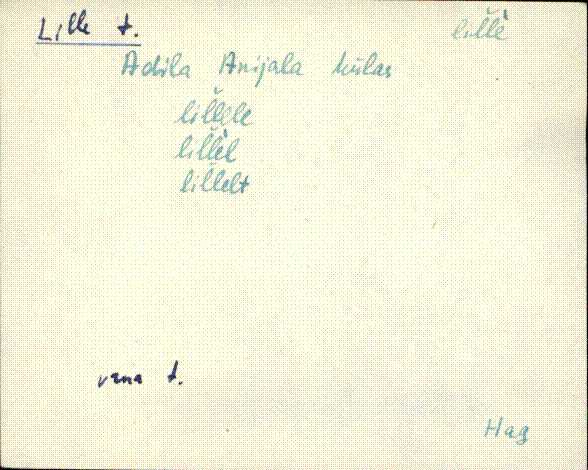 Lille t.
lil̆l̆è
Adila Anijala külas
lil̆l̆ele
lil̆l̆èl
lil̆l̆elt
vana t.
Hag